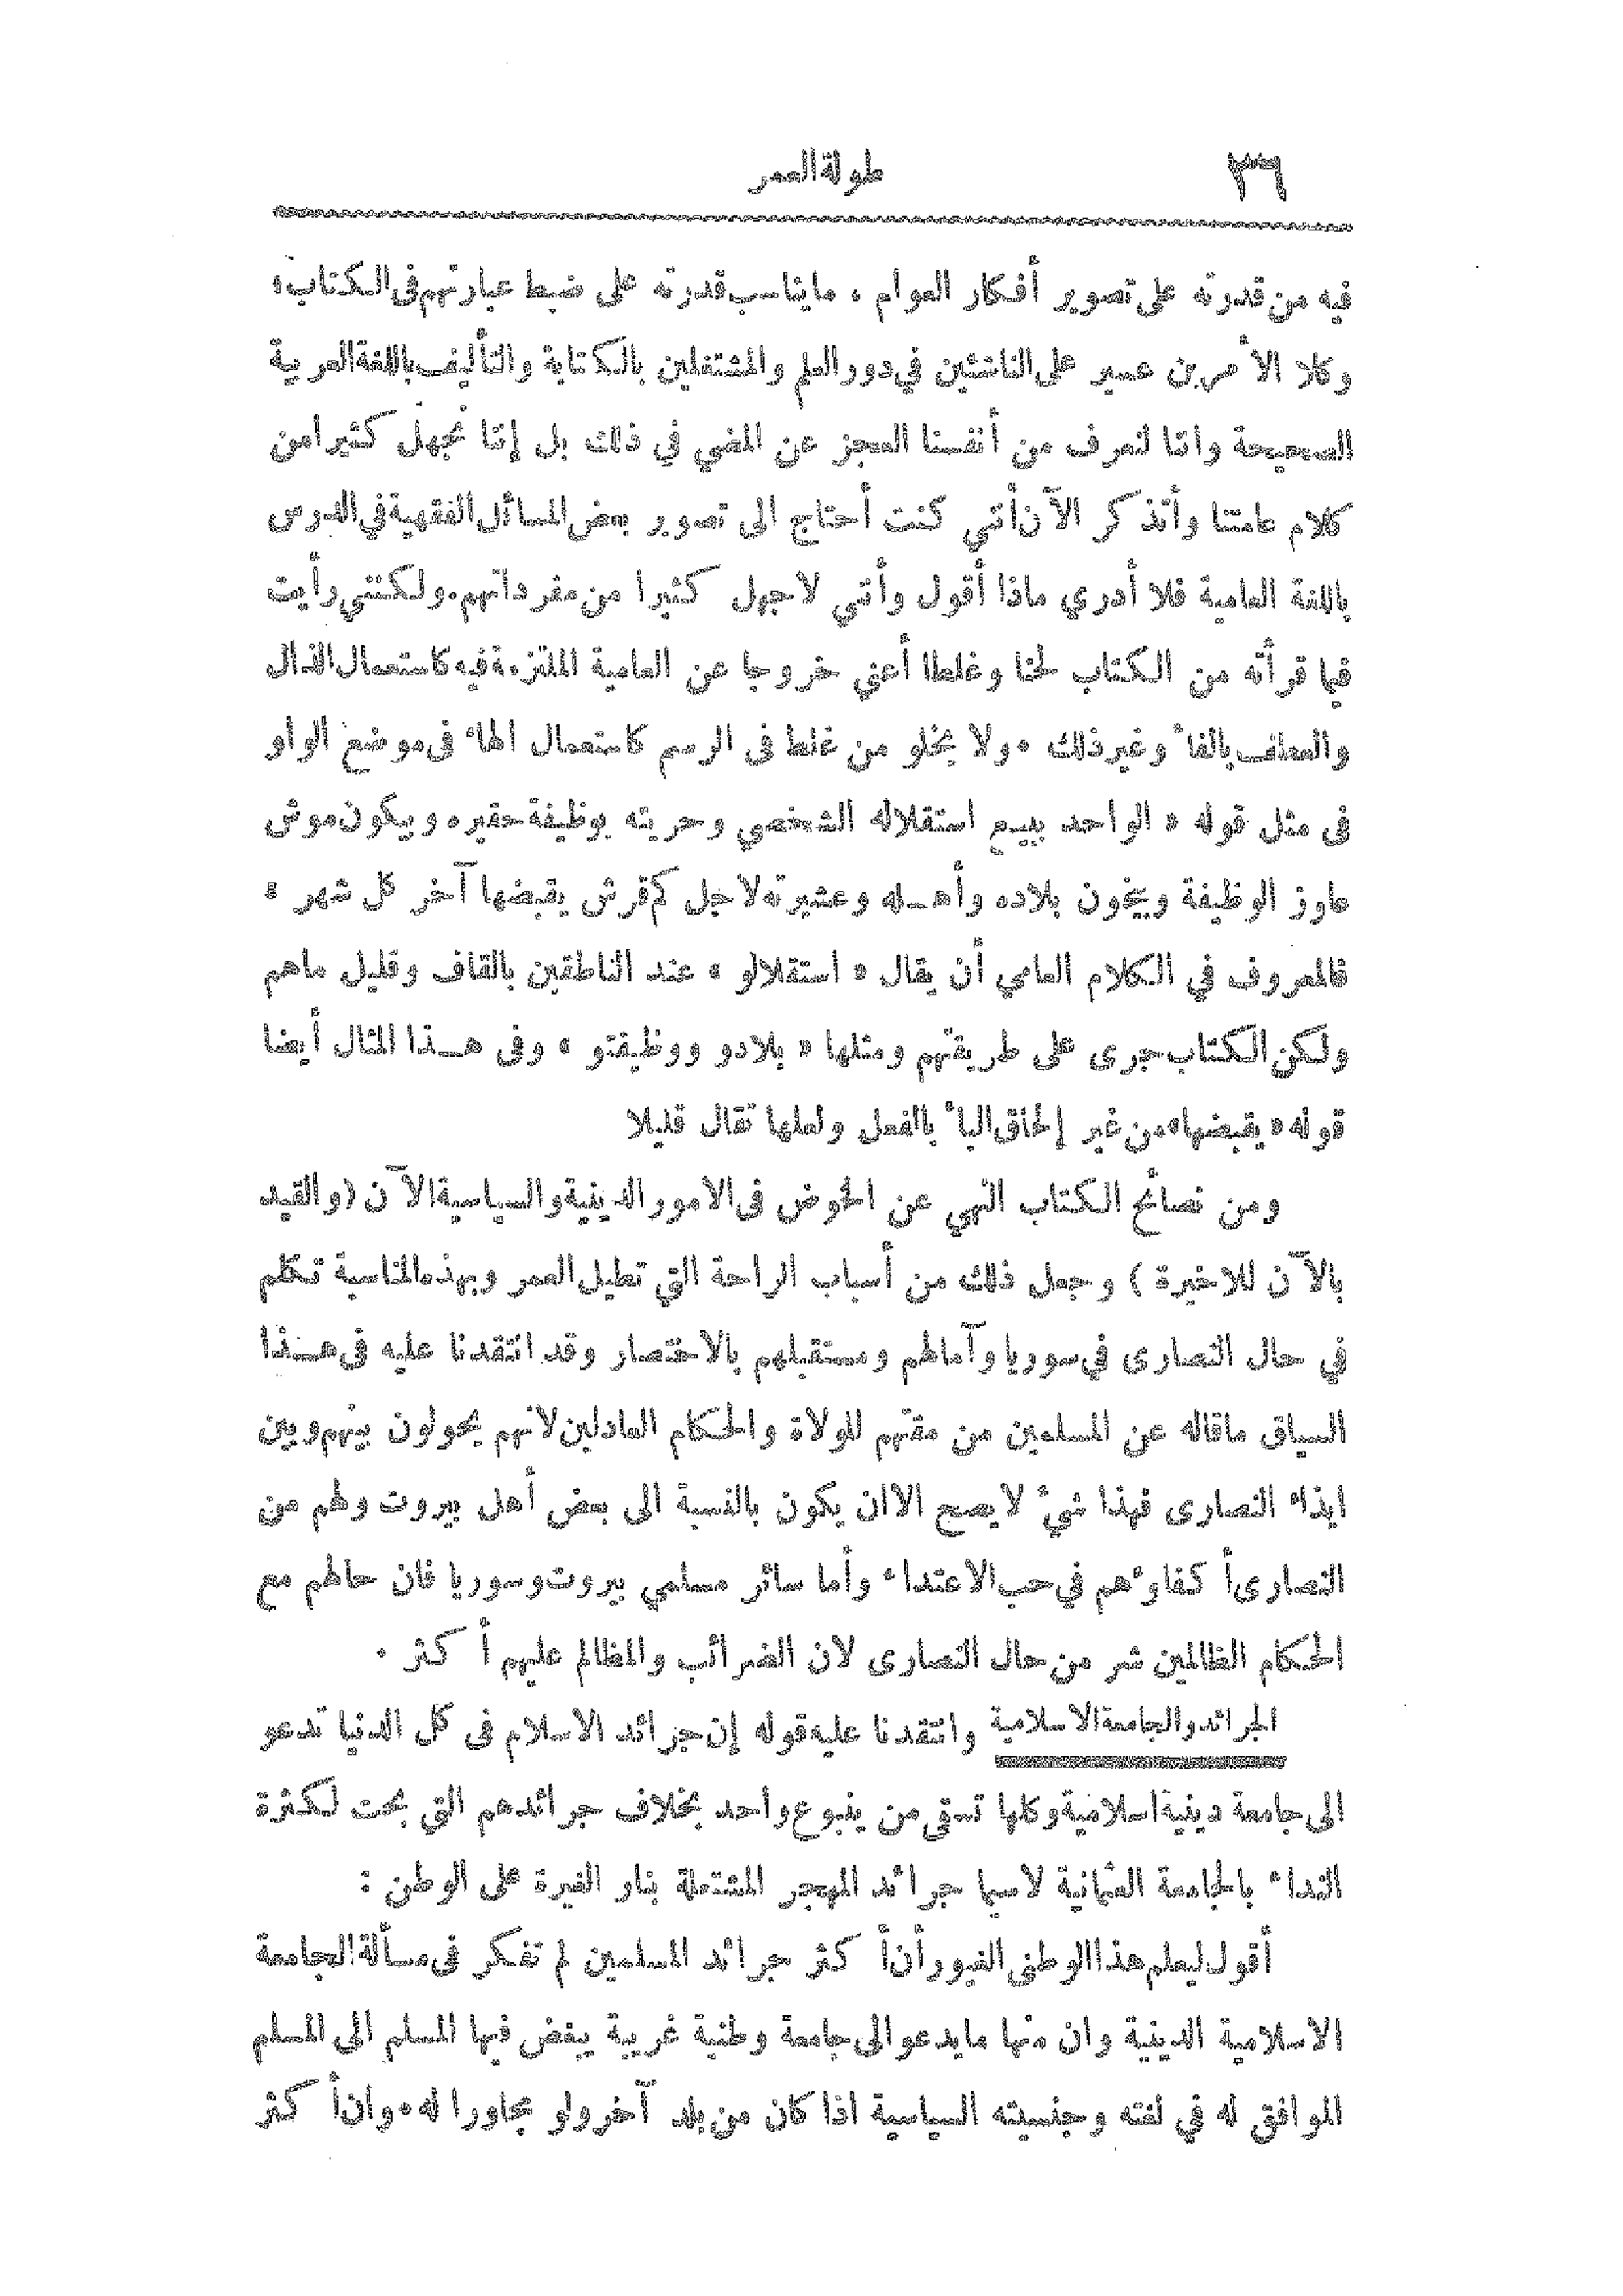 ٣٦
طولة العمر
فيه من قدرته على تصوير أفكار العوام ، مايناسب قدرته على ضبط عبارتهم في الكتاب ،
وكلا الأمرين عسير على الناشئين في دور العلم والمشتغلين بالكتابة والتأليف باللغة العربية
الصحيحة واننا لنعرف من أنفسنا العجز عن المضي في ذلك بل إننا نجهل كثيرا من
كلام عامتنا وأتذكر الآن أنني كنت أحتاج الى تصوير بعض المسائل الفقهية في الدرس
باللغة العامية فلا أدري ماذا أقول وأنني لاجهل كثيرا من مفرداتهم . ولكنني رأيت
فيما قرأته من الكتاب لحنا وغلطا أعني خروجا عن العامية الملتزمة فيه كاستعمال الذال
والعطف بالفاء وغير ذلك . ولا يخلو من غلط في الرسم كاستعمال الهاء في موضع الواو
في مثل قوله « الواحد يبيع استقلاله الشخصي وحريته بوظيفة حقيره ويكون موش
عاوز الوظيفة ويخون بلاده وأهله وعشيرته لاجل كم قرش يقبضها آخر كل شهر :
فالمعروف في الكلام العامي أن يقال « استقلالو » عند الناطقين بالقاف وقليل ماهم
ولكن الكتاب جرى على طريقتهم ومثلها « بلادو ووظيفتو » وفي هذا المثال أيضا
قوله « يقبضها » من غير إلحاق الباء بالفعل ولعلها تقال قليلا
ومن نصائح الكتاب النهي عن الخوض في الامور الدينية والسياسية الآن (والقيد
بالآن للاخيرة ) وجعل ذلك من أسباب الراحة التي تطيل العمر وبهذه المناسبة تكلم
في حال النصارى في سوريا وآمالهم ومستقبلهم بالاختصار وقد انتقدنا عليه في هذا
السياق ماقاله عن المسلمين من مقتهم للولاة والحكام العادلين لانهم يحولون بينهم وبين
ايذاء النصارى فهذا شيء لايصح الا ان يكون بالنسبة الى بعض أهل بيروت ولهم من
النصارى أكفاؤهم في حب الاعتداء وأما سائر مسلمي بيروت وسوريا فان حالهم مع
الحكام الظالمين شر من حال النصارى لان الضرائب والمظالم عليهم أكثر .
الجرائد والجامعة الاسلامية وانتقدنا عليه قوله إن جرائد الاسلام في كل الدنيا تدعو
الى جامعة دينية اسلامية وكلها تستقي من ينبوع واحد بخلاف جرائدهم التي بحت لكثرة
النداء بالجامعة العثمانية لاسيما جرائد المهجر المشتعلة بنار الغيرة على الوطن :
أقول ليعلم هذا الوطني الغيور أن أكثر جرائد المسلمين لم تفكر في مسألة الجامعة
الاسلامية الدينية وان منها مايدعو الى جامعة وطنية غريبة يبغض فيها المسلم الى المسلم
الموافق له في لغته وجنسيته السياسية اذا كان من بلد آخر ولو مجاورا له . وان أكثر